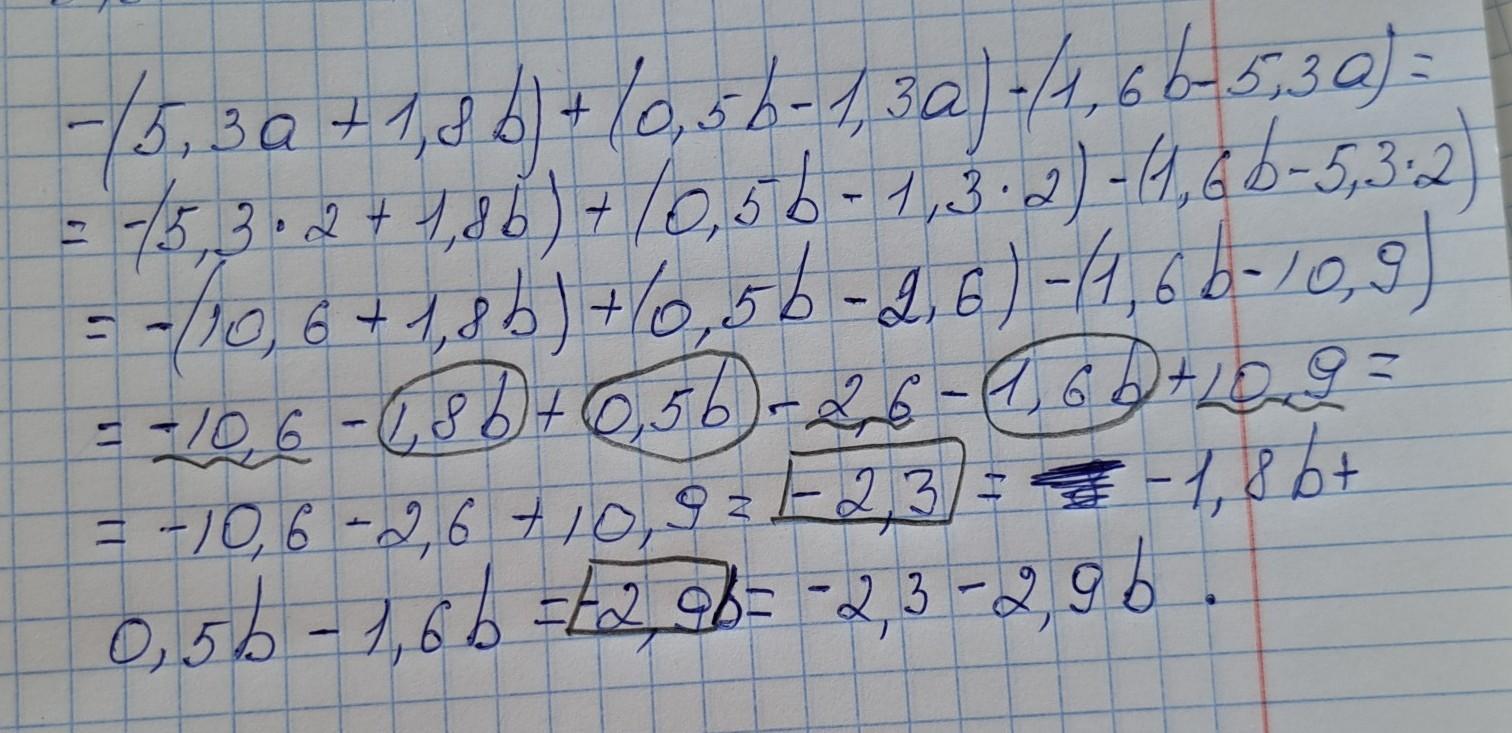 -(5,3a+1,8b)+(0,5b-1,3a)-(1,6b-5,3a)=
=-(5,3·2+1,8b)+(0,5b-1,3·2)-(1,6b-5,3·2)
=-(10,6+1,8b)+(0,5b-2,6)-(1,6b-10,9)
=-10,6-1,8b+0,5b-2,6-1,6b+10,9=
=-10,6-2,6+10,9=-2,3=-1,8b+
0,5b-1,6b=-2,9b=-2,3-2,9b.